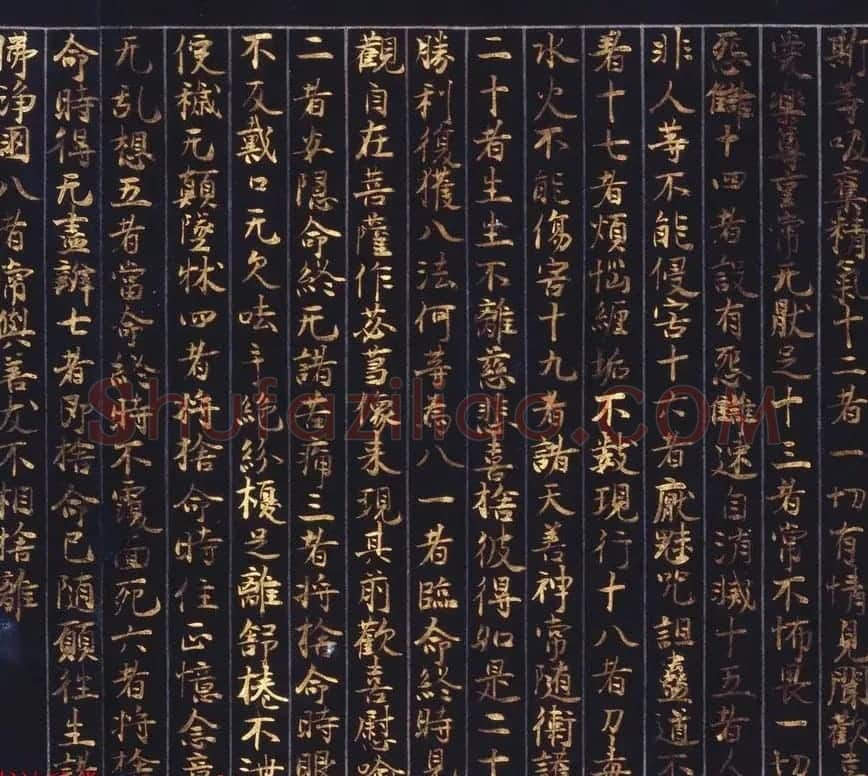 斯等吸棄精氣十二者一切有情見聞歡喜
愛樂尊重常无猒足十三者常不怖畏一切
怨讎十四者設有怨讎速自消滅十五者人
非人等不能侵害十六者厭魅咒詛蠱道不
著十七者煩惱纏垢不數現行十八者刀毒
水火不能傷害十九者諸天善神常随衛護
二十者生生不離慈悲喜捨彼得如是二十
勝利復獲八法何等為八一者臨命終時見
觀自在菩薩作苾芻像来現其前歡喜慰喻
二者安隱命終无諸苦痛三者將捨命時眼
不反戴口无欠呿手絕紛擾足離舒捲不泄
便穢无顛墜牀四者將捨命時住正憶念意
无亂想五者當命終時不覆面死六者將捨
命時得无盡辯七者既捨命已随願往生諸
佛淨國八者常與善友不相捨離
Shufaziliao.COM